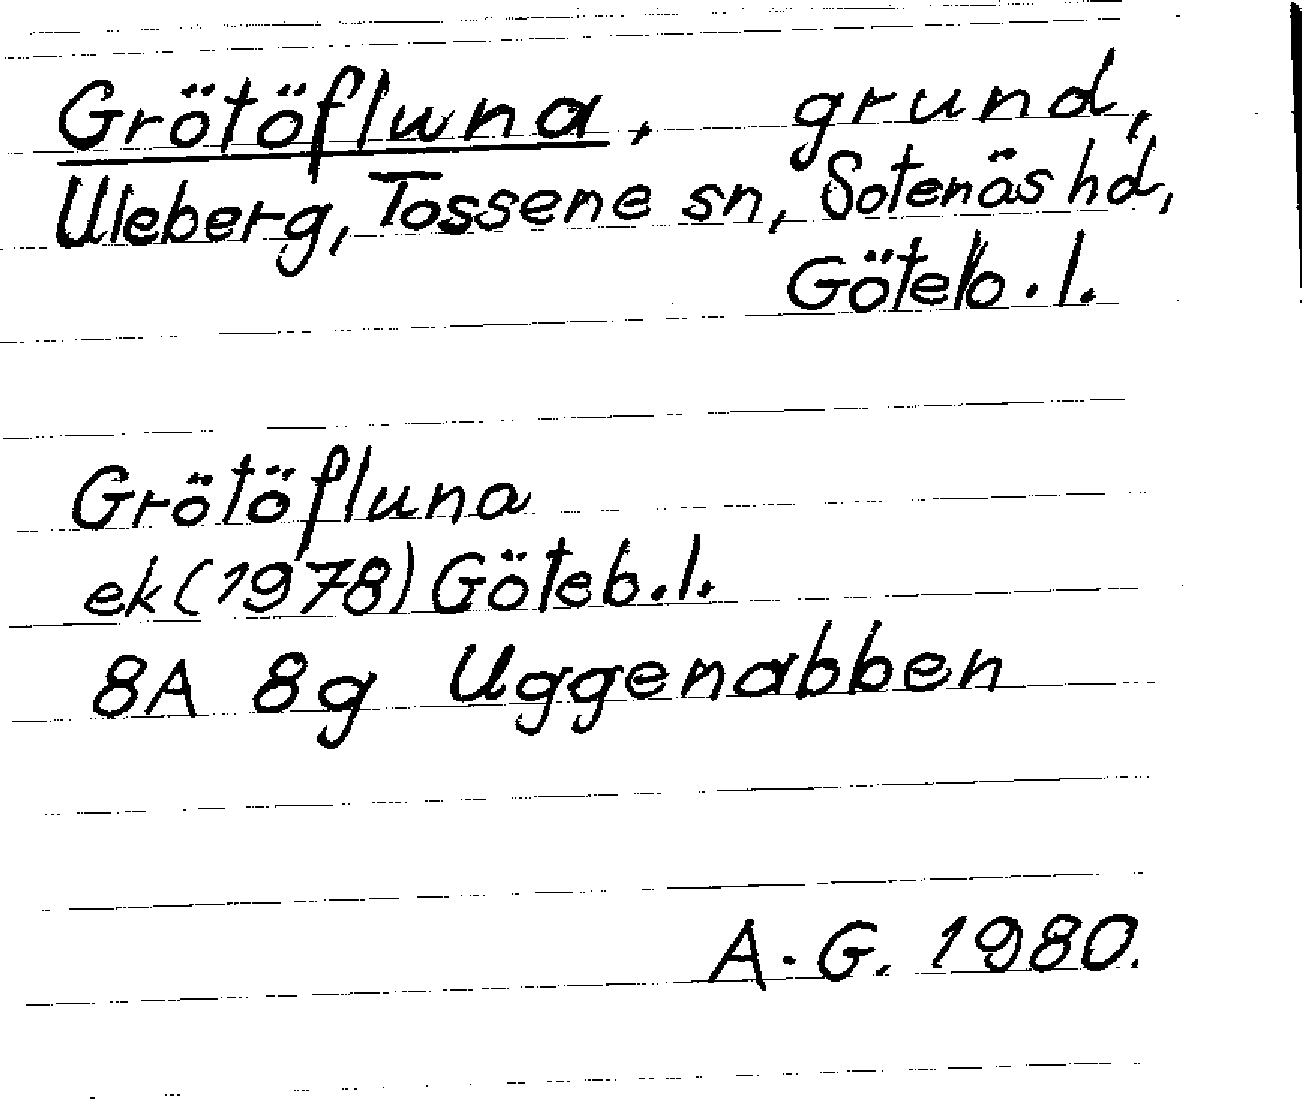 Grötöfluna, grund,
Uleberg, Tossene sn, Sotenäs hd,
Göteb.l.
Grötöfluna
ek (1978) Göteb.l.
8A 8g Uggenabben
A.G. 1980.